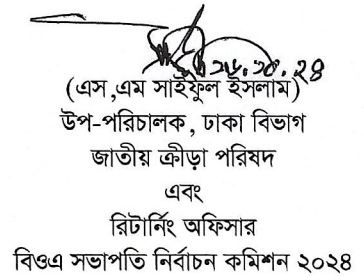 (এস,এম সাইফুল ইসলাম)
উপ-পরিচালক, ঢাকা বিভাগ
জাতীয় ক্রীড়া পরিষদ
এবং
রিটার্নিং অফিসার
বিওএ সভাপতি নির্বাচন কমিশন ২০২৪